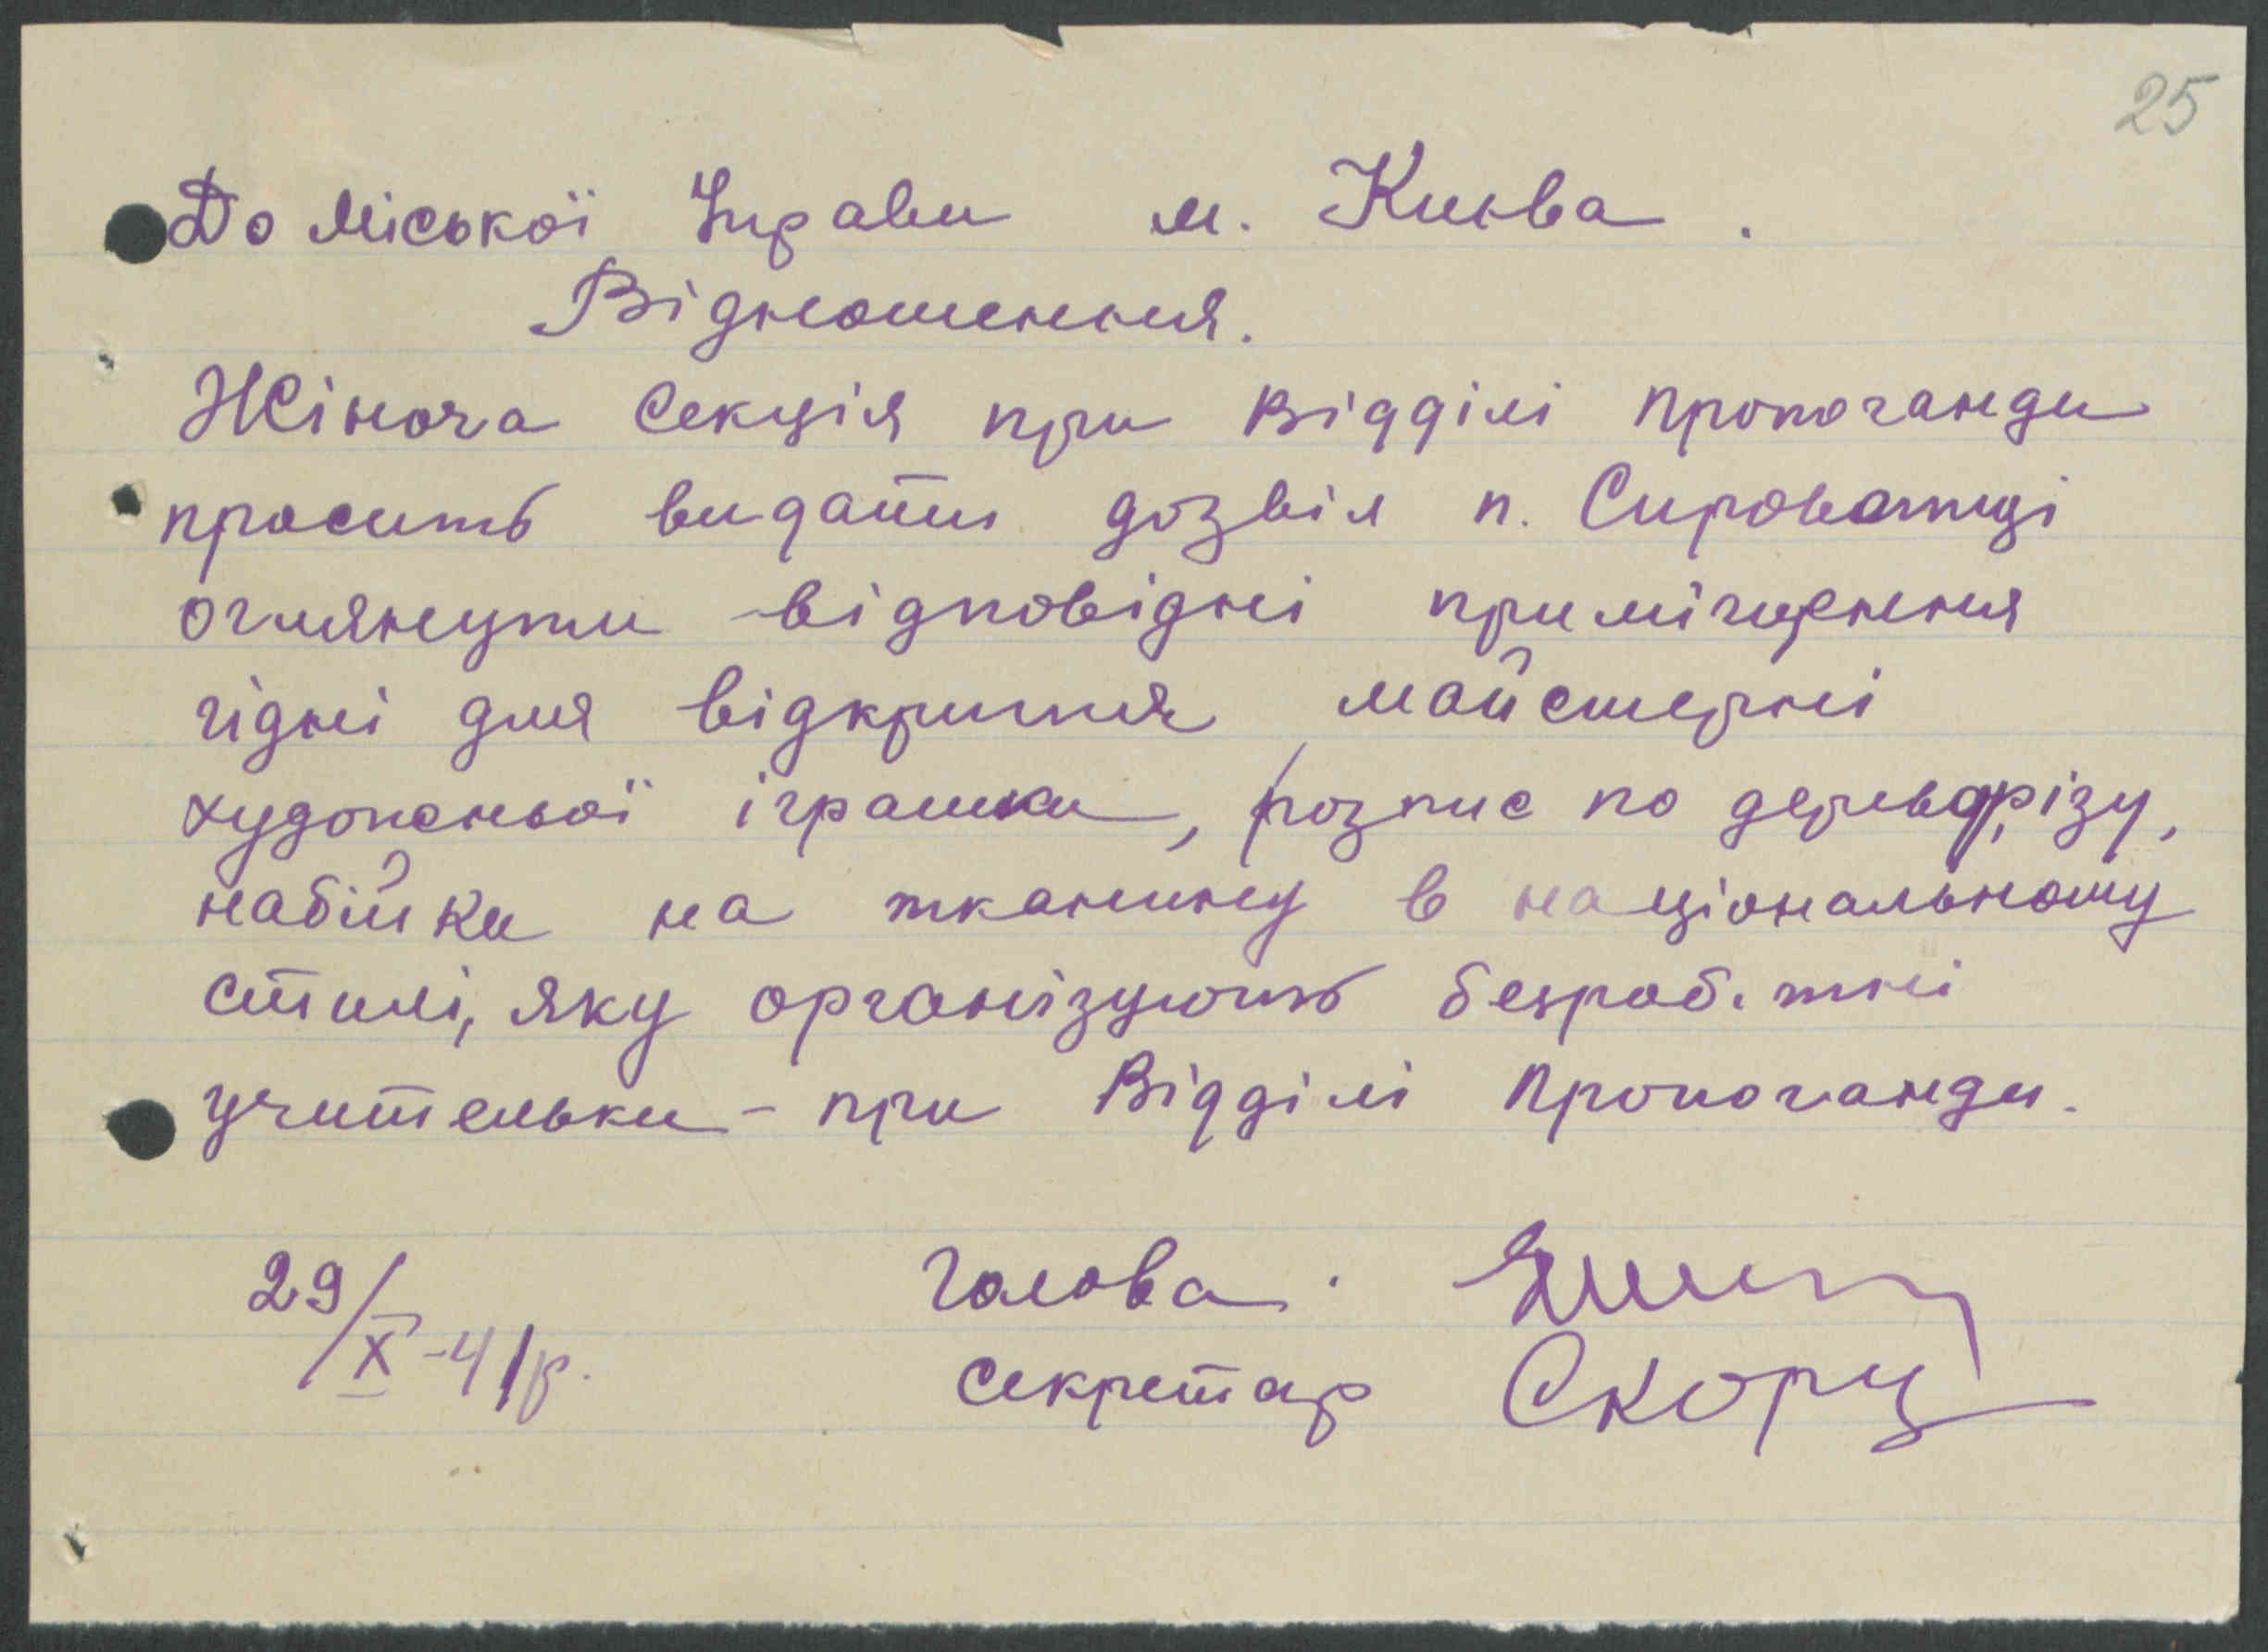 25
До Міської Управи м. Києва.
Відношення.
Жіноча Секція при Відділі Пропоганди
просить видати дозвіл п. Сироватці
оглянути відповідні приміщення
гідні для відкриття майстерні
художньої іграшки, розпис по дереву, різу,
набійки на тканину в національному
стилі, яку організують безробітні
учительки - при Відділі Пропоганди.
29/X-41р.
Голова.
Секретар Скорц